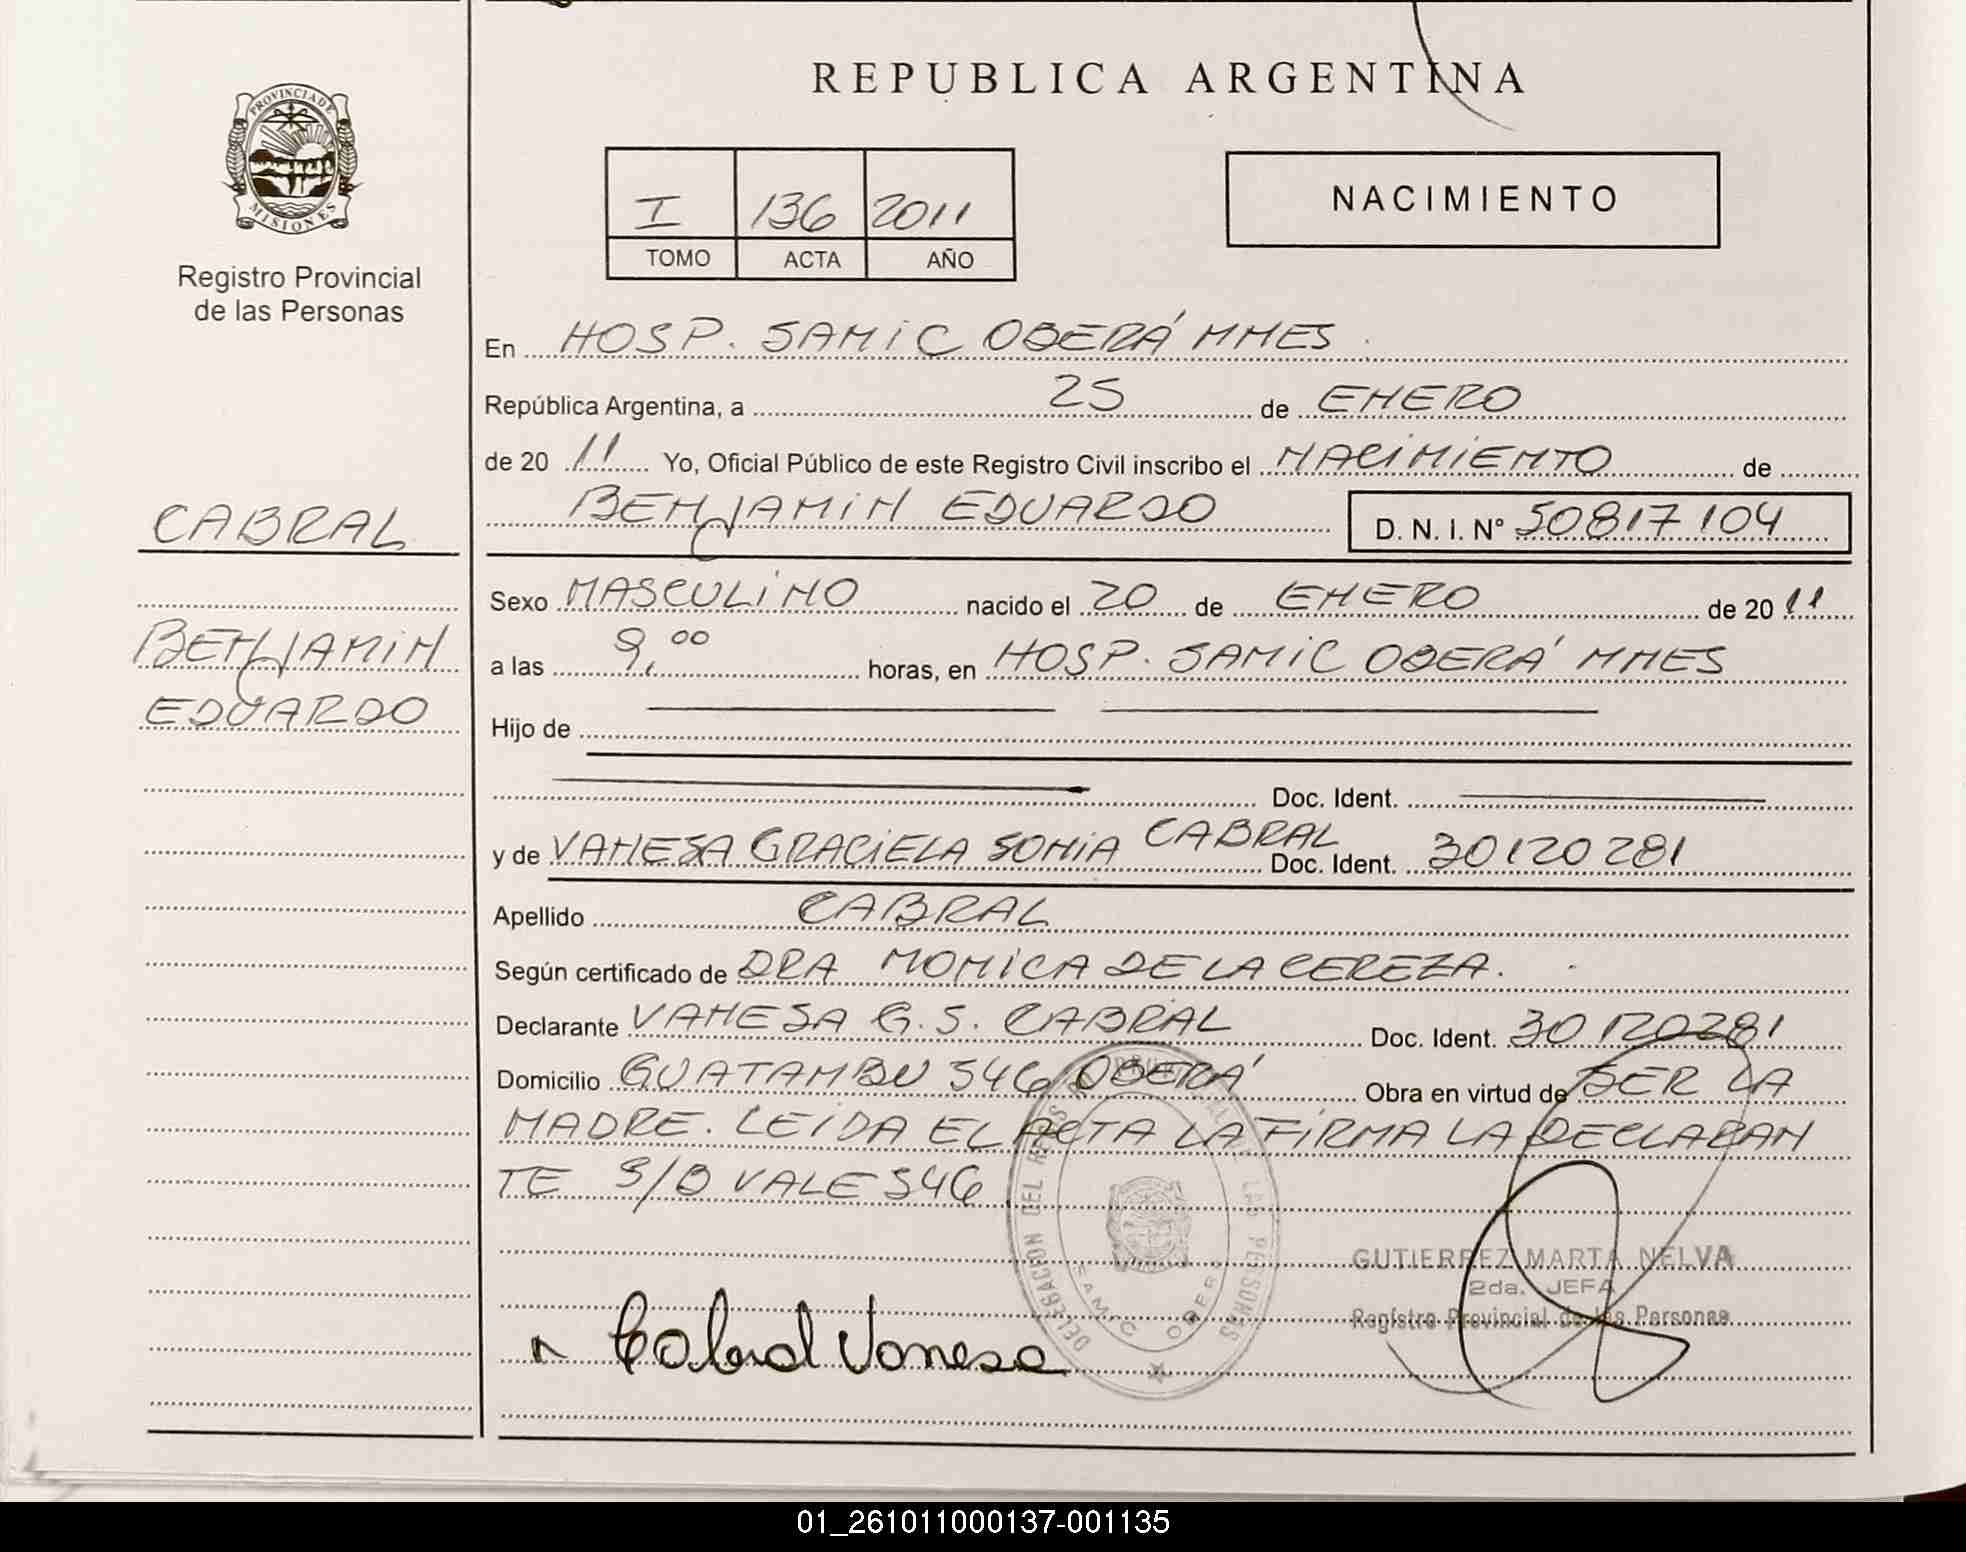 REPUBLICA ARGENTINA
PROVINCIA DE
MISIONES
Registro Provincial
de las Personas
I 136 2011
TOMO ACTA AÑO
NACIMIENTO
En HOSP. SAMIC OBERÁ MNES
República Argentina, a 25 de ENERO
de 20 11 Yo, Oficial Público de este Registro Civil inscribo el NACIMIENTO de
BENJAMIN EDUARDO D. N. I. N° 50817104
CABRAL
BENJAMIN
EDUARDO
Sexo MASCULINO nacido el 20 de ENERO de 20 11
a las 9,00 horas, en HOSP. SAMIC OBERÁ MNES
Hijo de
Doc. Ident.
y de VANESA GRACIELA SONIA CABRAL Doc. Ident. 30120281
Apellido CABRAL
Según certificado de DRA MONICA DE LA CEREZA.
Declarante VANESA G. S. CABRAL Doc. Ident. 30120281
Domicilio GUATAMBU 546 OBERÁ Obra en virtud de SER LA
MADRE. LEIDA EL ACTA LA FIRMA LA DECLARAN
TE S/B VALE 546
DELEGACION DEL REG PROVINCIAL DE LAS PERSONAS
SAMIC OBERA
GUTIERREZ MARTA NELVA
2da. JEFA
Registro Provincial de las Personas
Cabral Vanesa
01_261011000137-001135